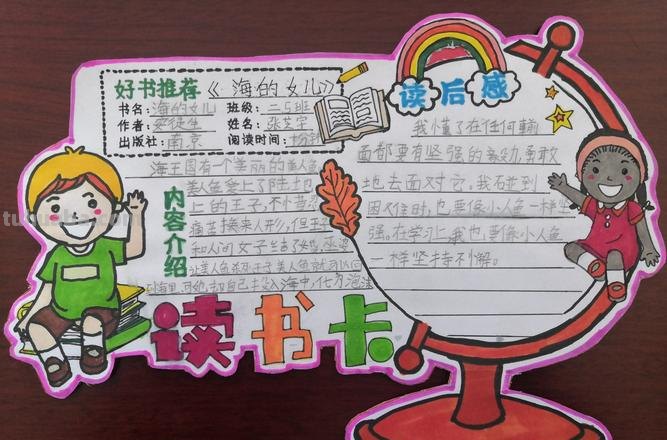 好书推荐《海的女儿》
书名：海的女儿 班级：二5班
作者：安徒生 姓名：张芝宇
出版社：南京 阅读时间：十分钟
内容介绍
海王国有一个美丽的美人鱼
美人鱼爱上了陆土
上的王子，不小
痛苦换来人形，但王子
和人间女子结了婚，巫婆
让美人杀死王子美人鱼就可以回
到海里，可她，却自己投入海中，化为泡沫
读后感
我懂了在任何
面都要有坚强的 勇敢
地去面对它。我碰到
困难时，也要像小人鱼一样坚
强。在学习上我也要像小人鱼
一样坚持不懈。
读书卡